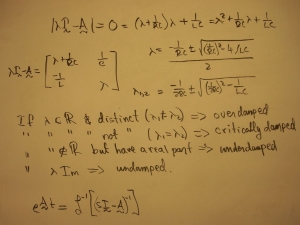 |λI-A| = 0 = (λ + 1/RC)λ + 1/LC = λ² + 1/RC λ + 1/LC
λI-A = [λ + 1/RC 1/C
-1/L λ]
λ = (-1/RC ± √((1/RC)² - 4/LC)) / 2
λ₁,₂ = -1/2RC ± √((1/2RC)² - 1/LC)
If λ ∈ ℝ & distinct (λ₁≠λ₂) => overdamped
" " " " not " (λ₁=λ₂) => critically damped
" " ∉ ℝ but have a real part => underdamped
" λ Im => undamped
e^At = ℒ⁻¹[(sI-A)⁻¹]